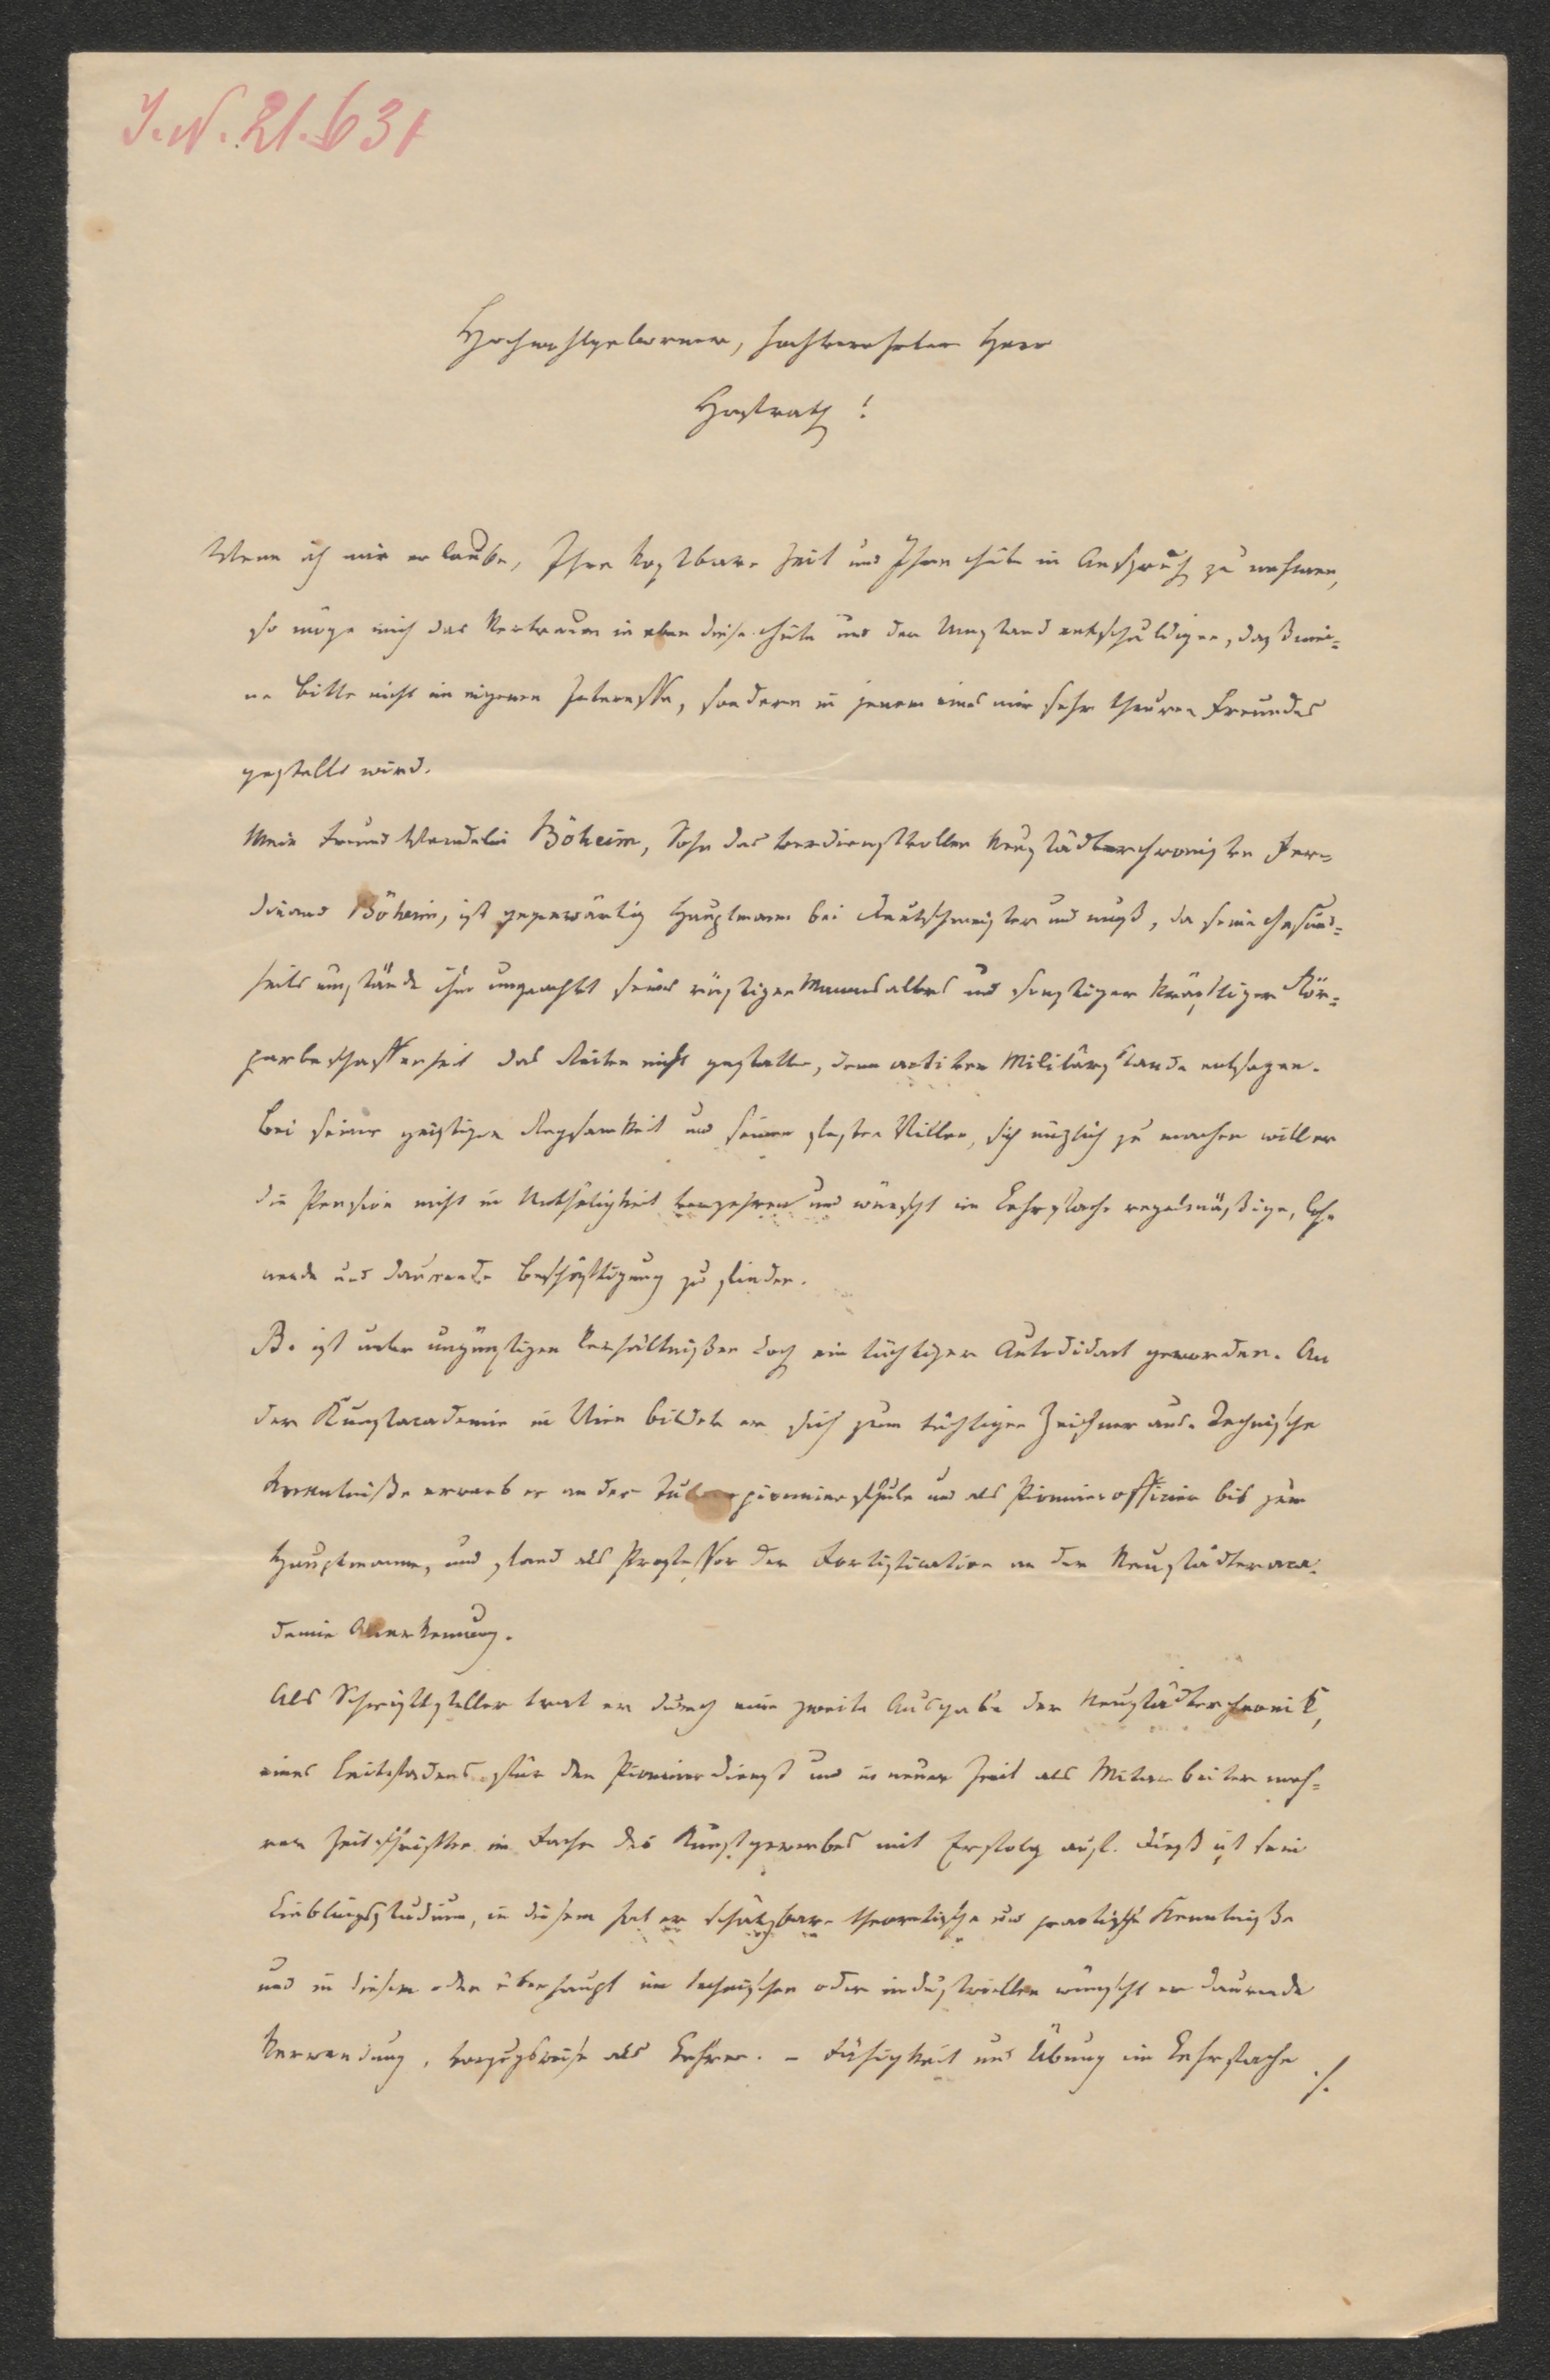 J.N. 21.631
Hochwohlgeborner, hochverehrter Herr
Hofrath!
Wenn ich mir erlaube, Ihre kostbare Zeit und Ihre Güte in Anspruch zu nehmen,
so möge mich das Vertrauen in eben diese Güte und der Umstand entschuldigen, daß mei=
ne Bitte nicht im eigenen Interesse, sondern in jenem eines mir sehr theuren Freundes
gestellt wird.
Mein Freund Wendelin Böheim, Sohn des verdienstvollen Neustädterchronisten Fer=
dinand Böheim, ist gegenwärtig Hauptmann bei Deutschmeister und muß, da seine Gesund=
heitsumstände ihm ungeachtet seines rüstigen Mannesalters und sonstiger kräftiger Kör=
perbeschaffenheit das Reiten nicht gestatten, dem activen Militärstande entsagen.
Bei seiner geistigen Regsamkeit und seinem festen Willen, sich nüzlich zu machen will er
die Pension nicht in Unthätigkeit verzehren und wünscht im Lehrfache regelmäßige, loh=
nende und daurende Beschäftigung zu finden.
B. ist unter ungünstigen Verhältnißen doch ein tüchtiger Autodidact geworden. An
der Kunstacademie in Wien bildete er sich zum tüchtigen Zeichner aus. Technische
Kenntniße erwarb er an der Tulnerpionnierschule und als Pionnierofficier bis zum
Hauptmanne, und fand als Professor der Fortification an der Neustädteraca=
demie Anerkennung.
Als Schriftsteller trat er durch eine zweite Ausgabe der Neustädterchronik,
eines Leitfadens für den Pionnierdienst und in neuer Zeit als Mitarbeiter meh=
rer Zeitschriften im Fache des Kunstgewerbes mit Erfolg auf. Dieß ist sein
Lieblingsstudium, in diesem hat er schätzbare theoretische und practische Kenntniße
und in diesem oder überhaupt im technischen oder industriellen wünscht er daurende
Verwendung, vorzugsweise als Lehrer. – Fähigkeit und Übung im Lehrfache
./.